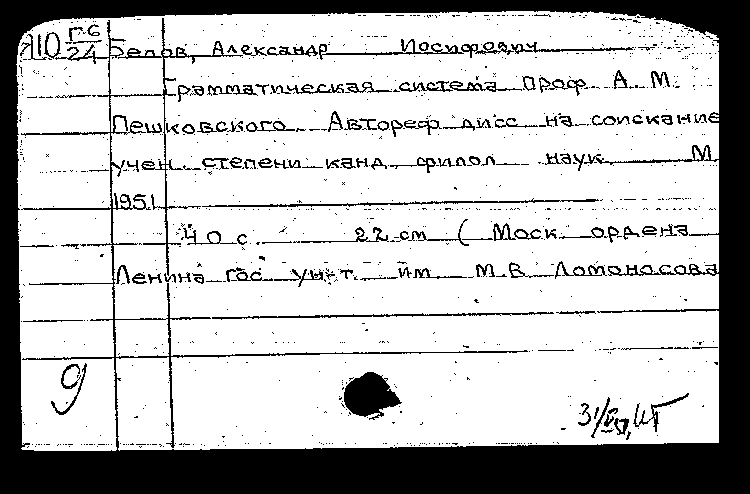 Г-6
110 24 Белов, Александр Иосифович
Грамматическая система проф. А. М.
Пешковского. Автореф дисс на соискание
учен. степени канд. филол наук. М.
1951
40 с. 22 см ( Моск. ордена
Ленина гос ун-т. им. М. В Ломоносова
9